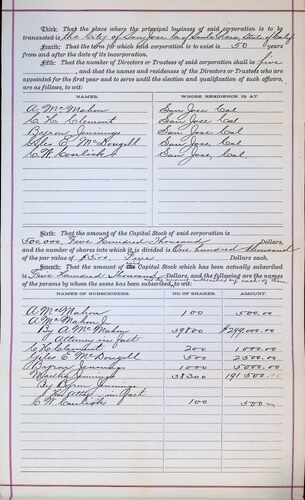 Third: That the place where the principal business of said corporation is to be
transacted is The City of San Jose Co of Santa Clara, State of Calif
Fourth: That the term for which said corporation is to exist is 50 years
from and after the date of its incorporation.
Fifth: That the number of Directors or Trustees of said corporation shall be five
, and that the names and residences of the Directors or Trustees who are
appointed for the first year and to serve until the election and qualification of such officers,
are as follows, to wit:
NAMES. WHOSE RESIDENCE IS AT
A McMahon San Jose Cal
C H Clement San Jose Cal
Byron Jennings San Jose Cal
Giles E McDougall San Jose Cal
C W San Jose Cal.
Sixth: That the amount of the Capital Stock of said corporation is
500,000, Five Hundred Thousand Dollars,
and the number of shares into which it is divided is One hundred thousand
of the par value of $5.00 Five Dollars each.
Seventh: That the amount of Capital Stock which has been actually subscribed
is Five Hundred Thousand Dollars, and the following are the names
of the persons by whom the same has been subscribed, to wit:
NAMES OF SUBSCRIBERS. NO. OF SHARES. AMOUNT.
A McMahon 100 500.00
A McMahon
By A McMahon 59800 $299,000.00
Attorney in fact
C H Clement 200 1000.00
Giles E McDougall 500 2500.00
Byron Jennings 1000 5000.00
Martha Jennings 38300 191,500.00
By Byron Jennings
Atty in fact
C W 100 500.00